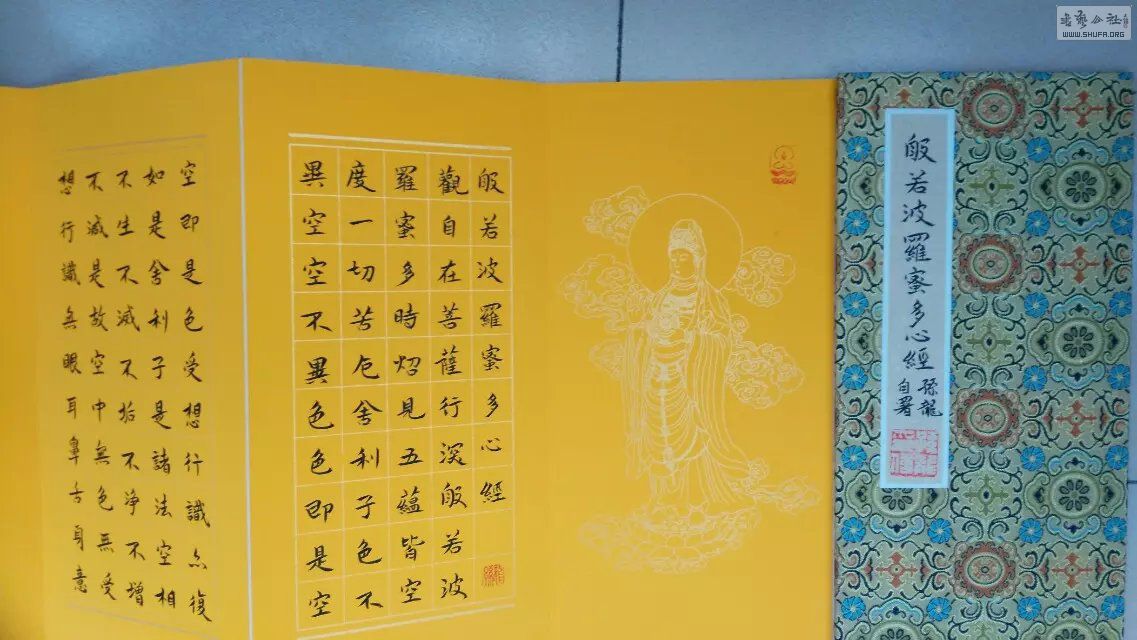 般若波羅蜜多心經
孫龍
自署
般若波羅蜜多心經
觀自在菩薩行深般若波
羅蜜多時炤見五蘊皆空
度一切苦厄舍利子色不
異空空不異色色即是空
空即是色受想行識亦復
如是舍利子是諸法空相
不生不滅不垢不淨不增
不減是故空中無色無受
想行識無眼耳鼻舌身意
書藝公社
WWW.SHUFA.ORG